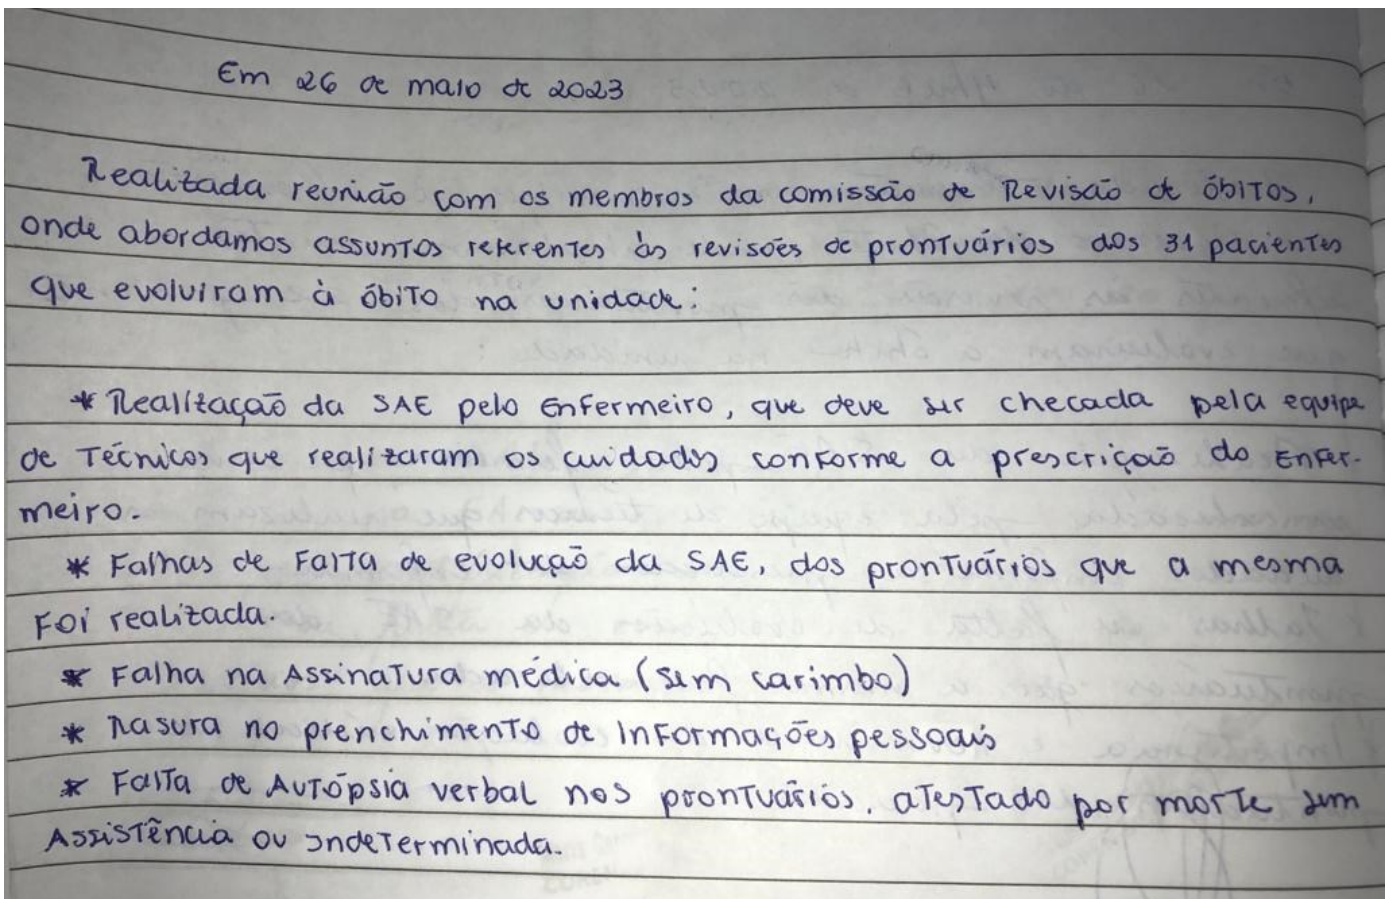 Em 26 de maio de 2023
Realizada reunião com os membros da comissão de Revisão de óbitos,
onde abordamos assuntos referentes às revisões de prontuários dos 31 pacientes
que evoluiram à óbito na unidade:
* Realização da SAE pelo Enfermeiro, que deve ser checada pela equipe
de Técnicos que realizaram os cuidados conforme a prescrição do Enfer-
meiro.
* Falhas de Falta de evolução da SAE, dos prontuários que a mesma
Foi realizada.
* Falha na Assinatura médica (sem carimbo)
* Rasura no prenchimento de Informações pessoais
* Falta de Autópsia verbal nos prontuários, atestado por morte sem
Assistência ou Indeterminada.